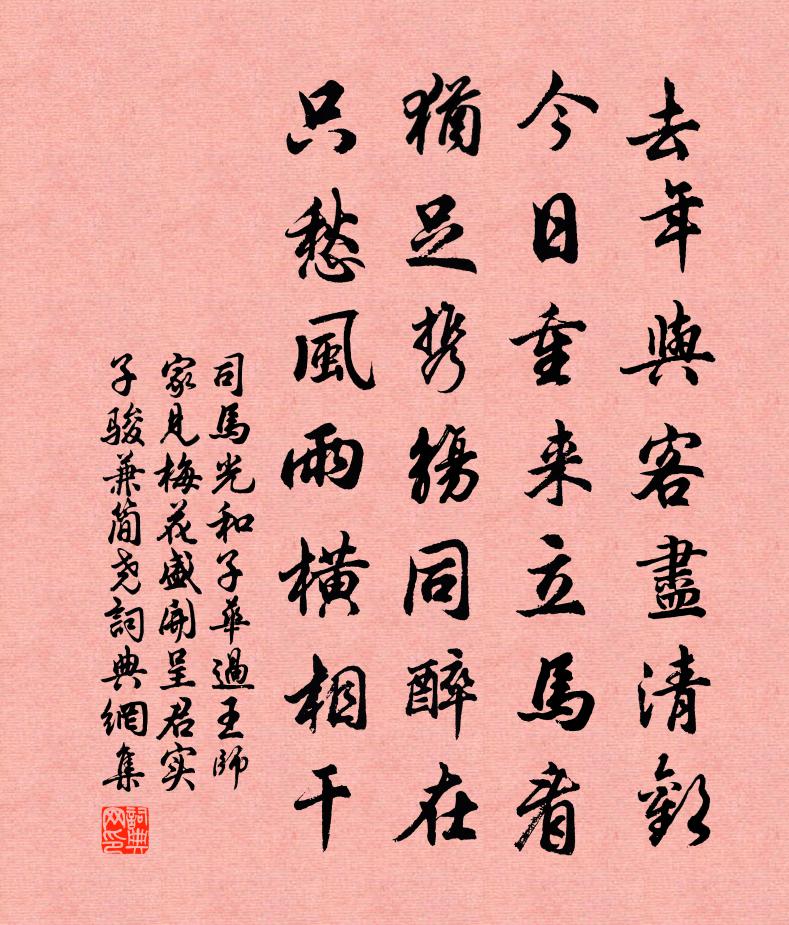 去年與客盡清歡
今日重来立馬看
猶足携觴同醉在
只愁風雨橫相干
司馬光和子華過王師
家見梅花盛開呈君实
子骏兼简尧詞典網集
詞典
网印